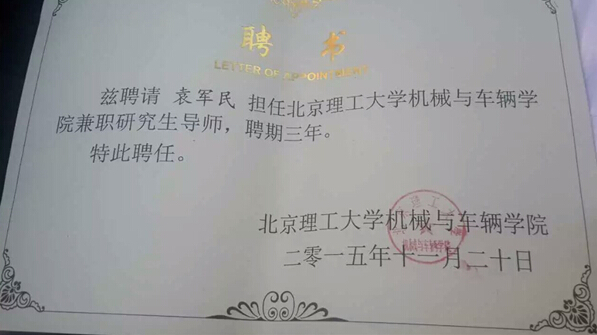 聘 书
LETTER OF APPOINTMENT
兹聘请 袁军民 担任北京理工大学机械与车辆学
院兼职研究生导师，聘期三年。
特此聘任。
北京理工大学机械与车辆学院
二零一五年十一月二十日
机械与车辆学院